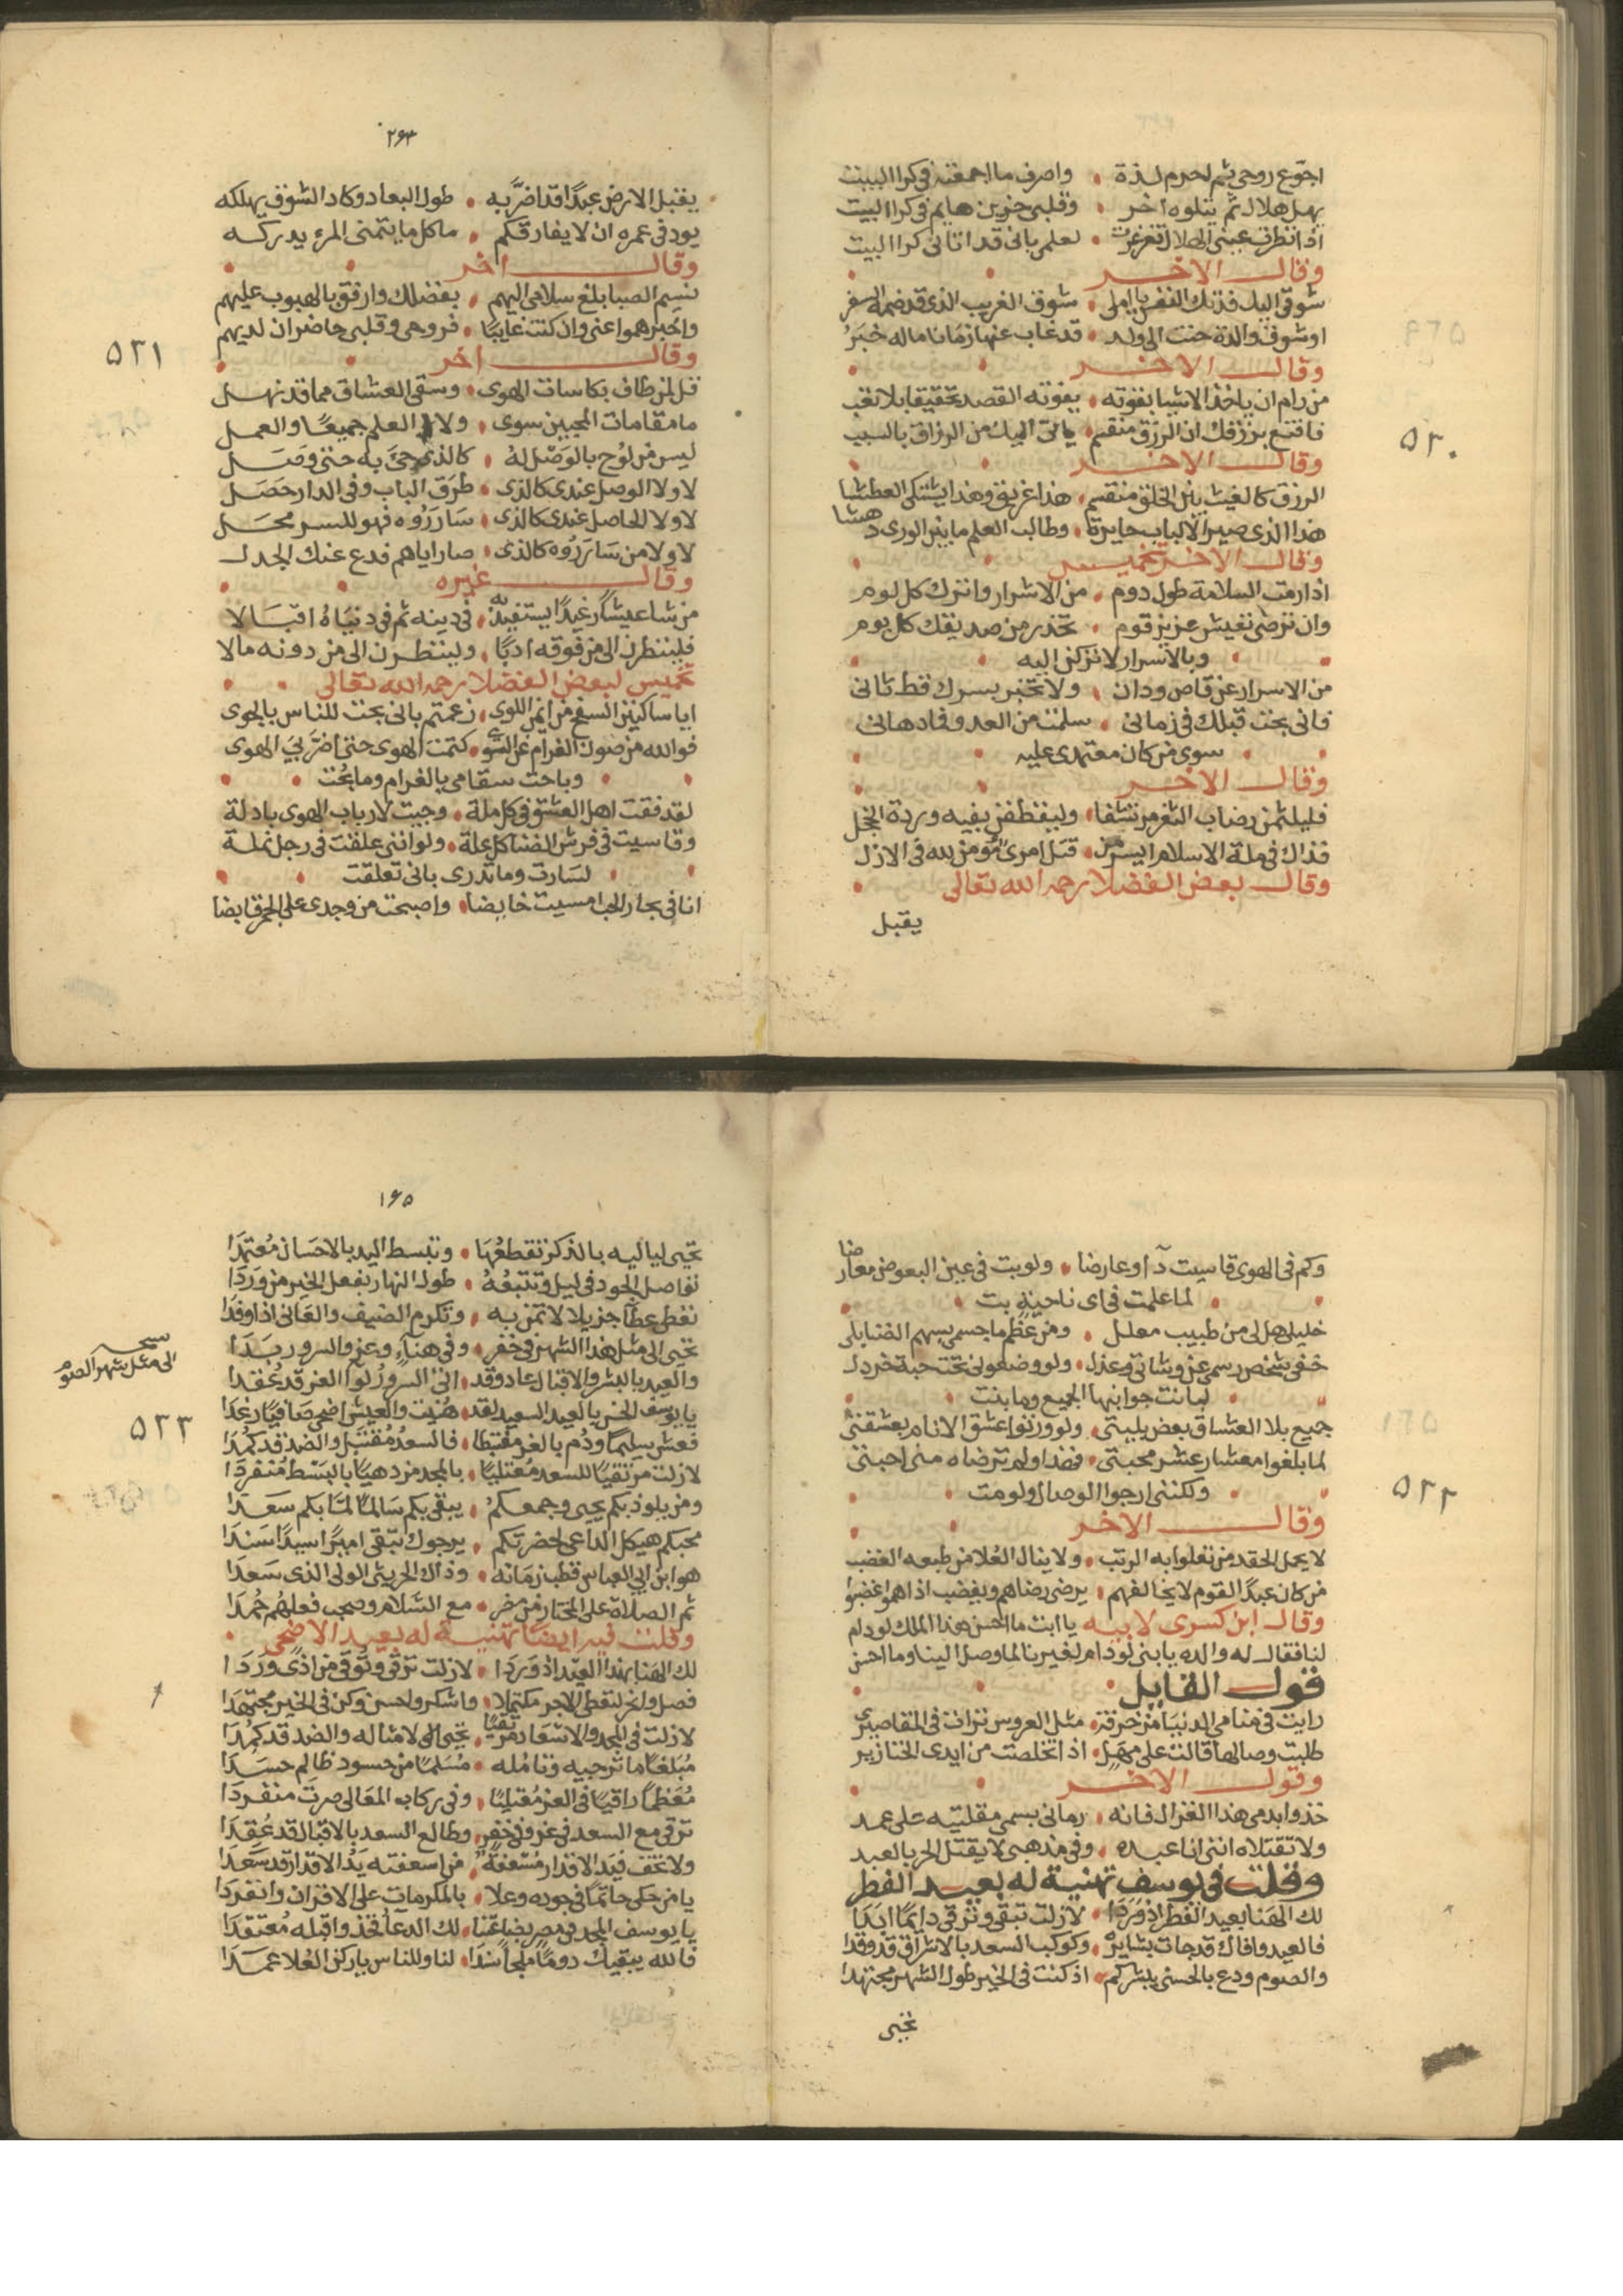 اجوع روحي ثم احرم لذة واصرف ما اجمعته في كرا البيت
يهل هلال ثم يتلوه اخر وقلبي حزين هايم في كرا البيت
اذا نظرت عيني الهلال تغرغرت لعلمي باني قد اتاني كرا البيت
وقال الاخر
شوقي اليك فدتك النفس يا املي شوق الغريب الذي قد ضمه السفر
او شوق والدة حنت الى ولد قد غاب عنها زمانا ما له خبر
وقال الاخر
من رام ان ياخذ الاشيا بقوته يفوته القصد تحقيقا بلا تعب
فاقنع برزقك ان الرزق منقسم ياتي اليك من الرزاق بالسبب
وقال الاخر
الرزق كالغيث بين الخلق منقسم هذا غريق وهذا يشتكي العطشا
هذا الذي صير الالباب حايرة وطالب العلم ما بين الورى دهشا
وقال الاخر تخميس
اذا رمت السلامة طول دوم من الاشرار واترك كل لوم
وان ترضى تعيش عزيز قوم تحذر من صديقك كل يوم
وبالاسرار لا تركن اليه
من الاسرار عن قاص ودان ولا تخبر بسرك قط ثاني
فاني بحت قبلك في زماني سلمت من العدو فما دهاني
سوى من كان معتمدي عليه
وقال الاخر
فليلثمن رضاب الثغر مرتشفا وليقطفن بفيه وردة الخجل
فذاك في ملة الاسلام ايسر من قتل امرئ مؤمن لله في الازل
وقال بعض الفضلا رحمه الله تعالى
يقبل
٢٦٣
يقبل الارض عبدا قد اضر به طول البعاد وكاد الشوق يهلكه
يود في عمره ان لا يفارقكم ما كل ما يتمنى المرء يدركه
وقال اخر
نسيم الصبا بلغ سلامي اليهم بفضلك وارفق بالهبوب عليهم
واخبر هموا عني وان كنت غايبا فروحي وقلبي حاضران لديهم
وقال اخر
قل لمن طاف بكاسات الهوى وسقى العشاق مما قد نهل
ما مقامات المحبين سوى ولا العلم جميعا والعمل
ليس من لوح بالوصل له كالذي جئ به حتى وصل
لا ولا الوصل عندي كالذي طرق الباب وفي الدار حصل
لا ولا الحاصل عندي كالذي سارروه فهو للسر محل
لا ولا من سارروه كالذي صار اياهم فدع عنك الجدل
وقال غيره
من شا عيشا رغيدا يستفيد به في دينه ثم في دنياه اقبالا
فلينظرن الى من فوقه ادبا ولينظرن الى من دونه مالا
تخميس لبعض الفضلا رحمه الله تعالى
ايا ساكنين السفح من ايمن اللوى زعمتم باني بحت للناس بالجوى
فوالله من صون الغرام عن السوى كتمت الهوى حتى اضر بي الهوى
وباحت سقامي بالغرام وما بحت
لقد فقت اهل العشق في كل ملة وجيت لارباب الهوى بادلة
وقاسيت في فرش الضنا كل علة ولو انني علقت في رجل نملة
لسارت وما تدري باني تعلقت
انا في بحار الحب امسيت خايضا واصبحت من وجدي على الجمر قابضا
٥٢٠
٥٢١
وكم في الهوى قاسيت دآ وعارضا ولو بت في عين البعوض معارضا
لما علمت في اي ناحية بت
خليلي هل لي من طبيب معلل ومن عظم ما جسمي بسهم الضنا بلي
خفي شخص رسمي عن وشاتي وعذل ولو وضعوني تحت حبة خردل
لما نت جوانبها الجميع وما بنت
جميع بلا العشاق بعض بليتي ولو ورثوا عشق الانام بعشقتي
لما بلغوا معشار عشر محبتي فضذا ولم ترضاه مني احبتي
ولكنني ارجوا الوصال ولو مت
وقال الاخر
لا يحمل الحقد من تعلوا به الرتب ولا ينال العلا من طبعه الغضب
من كان عبد القوم لا يخالفهم يرضى رضاهم ويغضب اذا هموا غضبوا
وقال ابن كسرى لابيه يا ابت ما احسن هذا الملك لو دام
لنا فقال له والده يا بني لو دام لغيرنا لما وصل الينا وما احسن
قول القايل
رايت في منامي الدنيا مزخرفة مثل العروس تراات في المقاصير
طلبت وصالها قالت على مهل اذا تخلصت من ايدي الخنازير
وقول الاخر
خذوا بدمي هذا الغزال فانه رماني بسهمي مقلتيه على عمد
ولا تقتلاه انني انا عبده وفي مذهبي لا يقتل الحر بالعبد
وقلت في يوسف تهنية له بعيد الفطر
لك الهنا بعيد الفطر اذ وردا لا زلت تبقى وترقى دايما ابدا
فالعيد وافاك قد جات بشايره وكوكب السعد بالاشراق قد وقدا
والصوم ودع بالحسنى يبشركم اذ كنت في الخير طول الشهر مجتهدا
تحيي
١٦٥
تحيي لياليه بالذكر تقطعها وتبسط اليد بالاحسان معتمدا
تواصل الجود في ليل وتتبعه طول النهار بفعل الخير من وردا
تعطي عطآ جزيلا لا تمن به وتكرم الضيف والعاني اذا وفدا
تحيى الى مثل هذا الشهر في خفر وفي هناء وعز والسرور بدا
والعيد بالبشر والاقبال عاد وقد اني السرور لوا العز قد عقدا
يا يوسف الحسن بالعيد السعيد لقد هنيت والعيش اضحى صافيا رغدا
فعش سليما ودم بالعز مغتبطا فالسعد مقتبل والضد قد كمدا
لا زلت مرتقيا للسعد معتليا بالمجد مزدهيا بالبسط منفردا
ومن يلوذ بكم يحيى وجمعكم يبقى بكم سالما لما بكم سعدا
محبكم هيكل الداعي لحضرتكم يرجوك تبقى اميرا سيدا سندا
هو ابن ابي العباس قطب زمانه وذاك الحريثي الولي الذي سعدا
ثم الصلاة على المختار من مضر مع السلام وصحب فعلهم حمدا
وقلت فيه ايضا تهنية له بعيد الاضحى
لك الهنا بهذا العيد اذ وردا لا زلت ترقى وتوقى من اذى وردا
فصل وانحر لتعطى الاجر مكتملا واشكر واحسن وكن في الخير مجتهدا
لا زلت في المجد والاسعاد مرتقيا تحيى الى لامثاله والضد قد كمدا
مبلغا ما ترجيه وتامله مسلما من حسود ظالم حسدا
معظما راقيا في العز مقتبلا وفي ركاب المعالي صرت منفردا
ترقى مع السعد في عز وفي خفر وطالع السعد بالاقبال قد عقدا
ولا تخف فيد الاقدار مسعفة من اسعفته يد الاقدار قد سعدا
يا من حكى حاتما في جوده وعلا بالمكرمات على الاقران وانفردا
يا يوسف المجد في مصر بضاعتنا لك الدعآ فخذ واقبله معتقدا
فالله يبقيك دوما ملجأ سندا لنا وللناس يا ركن العلا عمدا
الى مثل شهر الصوم
٥٢٢
٥٢٣